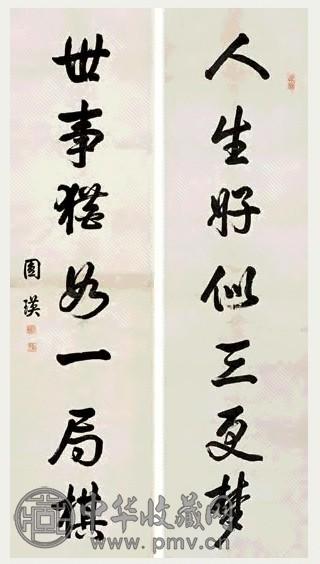 人生好似三更梦
世事犹如一局棋
圆瑛
中华收藏网
www.pmv.cn